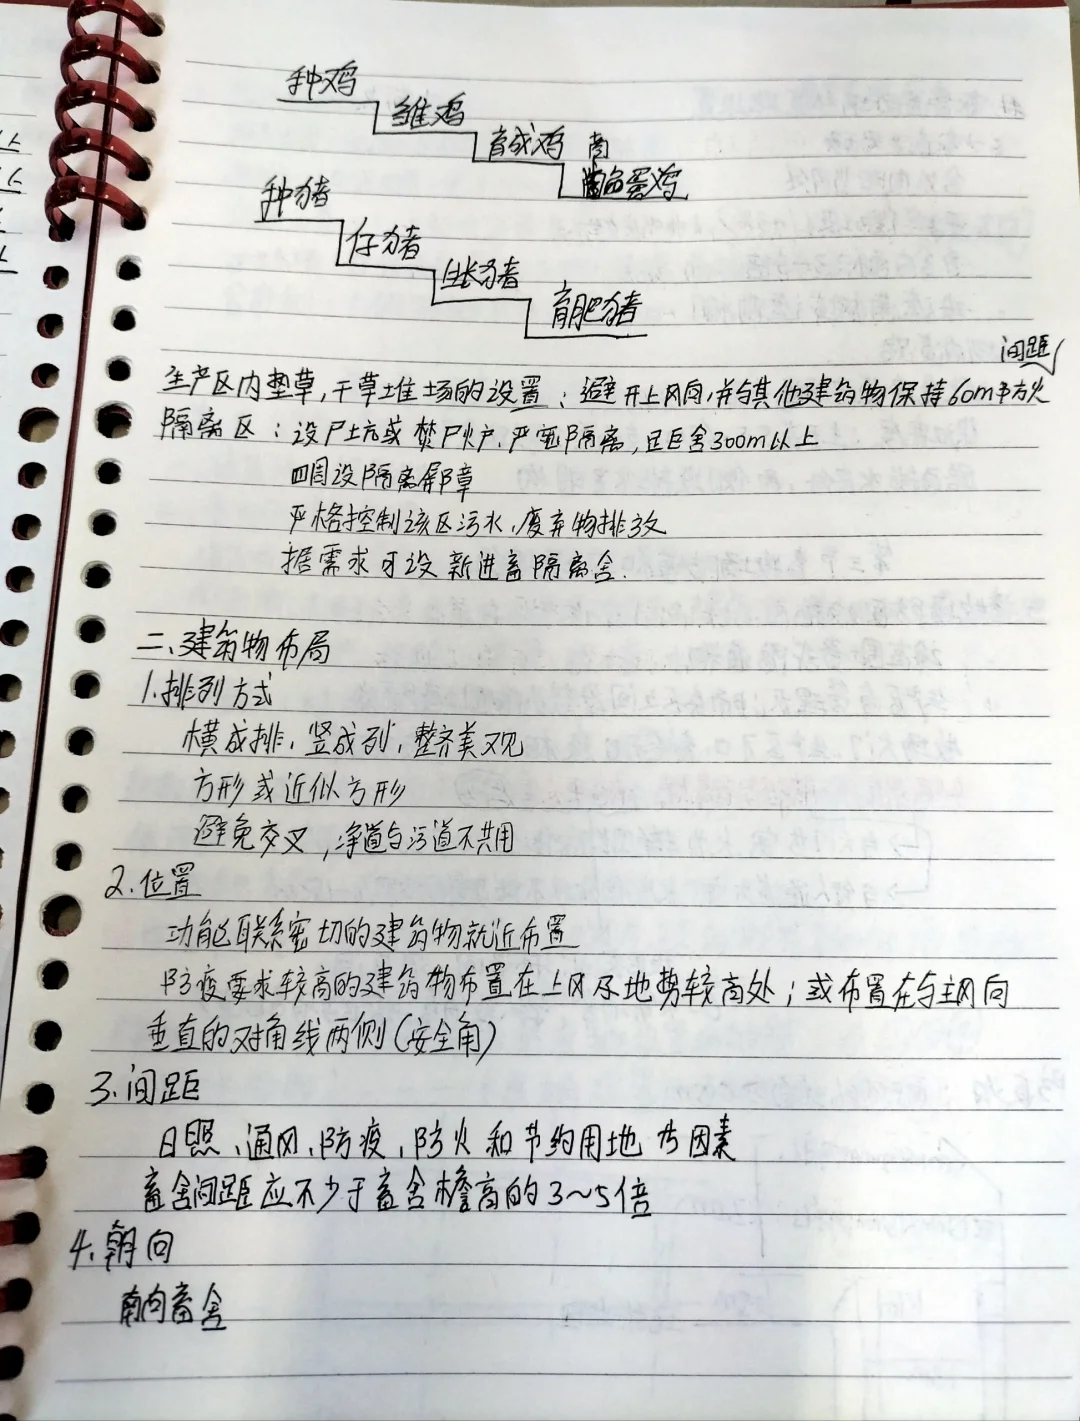 种鸡
雏鸡
育成鸡 商
蛋鸡
种猪
仔猪
生长猪
育肥猪
间距
生产区内垫草,干草堆场的设置:避开上风向,并与其他建筑物保持60m防火
隔离区:设尸坑或焚尸炉,严密隔离,距舍300m以上
四周设隔离屏障
严格控制该区污水、废弃物排放
据需求可设新进畜隔离舍.
二、建筑物布局
1.排列方式
横成排、竖成列,整齐美观
方形或近似方形
避免交叉,净道与污道不共用
2.位置
功能联系密切的建筑物就近布置
防疫要求较高的建筑物布置在上风及地势较高处;或布置在与主风向
垂直的对角线两侧(安全角)
3.间距
日照、通风、防疫、防火和节约用地 为因素
畜舍间距应不少于畜舍檐高的3~5倍
4.朝向
南向畜舍